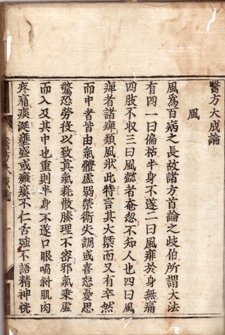 醫方大成論
風
風為百病之長故諸方首論之歧伯所謂大法
有四一曰偏枯半身不遂二曰風痱於身無痛
四肢不收三曰風懿者奄忽不知人也四曰風
痺者諸痺類風狀此特言其大槩而又有卒然
而中者皆由氣體虛弱榮衛失調或喜怒憂思
驚恐勞役以致真氣耗散腠理不密邪氣乘虛
而入及其中也重則半身不遂口眼喎斜肌肉
疼痛痰涎壅盛或癱瘓不仁舌強不語精神恍